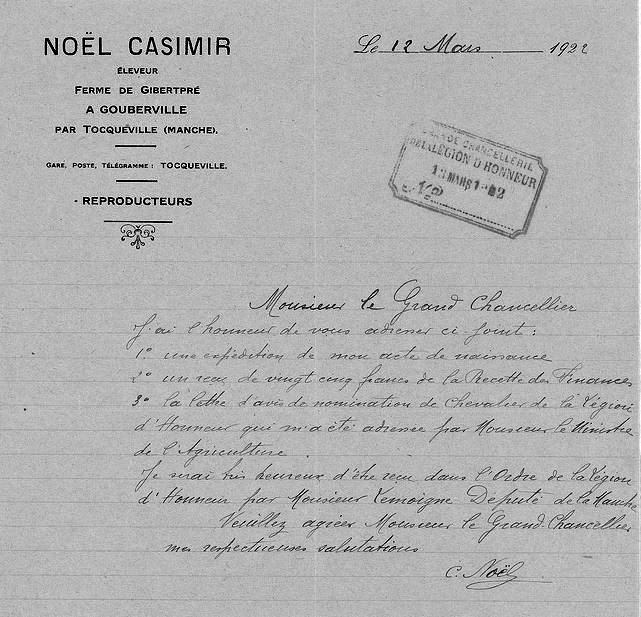 NOËL CASIMIR
ÉLEVEUR
FERME DE GIBERTPRÉ
A GOUBERVILLE
PAR TOCQUEVILLE (MANCHE).
GARE, POSTE, TÉLÉGRAMME : TOCQUEVILLE.
REPRODUCTEURS
Le 12 Mars 1922
GRANDE CHANCELLERIE
DE LA LÉGION D'HONNEUR
MARS
Monsieur le Grand Chancellier
J'ai l'honneur de vous adresser ci-joint :
1° une expédition de mon acte de naissance
2° un recu de vingt cinq francs de la Recette des Finances
3° la lettre d'avis de nomination de Chevalier de la Légion
d'Honneur qui m'a été adressée par Monsieur le Ministre
de l'Agriculture.
Je serai très heureux d'être reçu dans l'Ordre de la Légion
d'Honneur par Monsieur Lemoigne Député de la Manche
Veuillez agréer Monsieur le Grand-Chancellier
mes respectueuses salutations
C. Noël